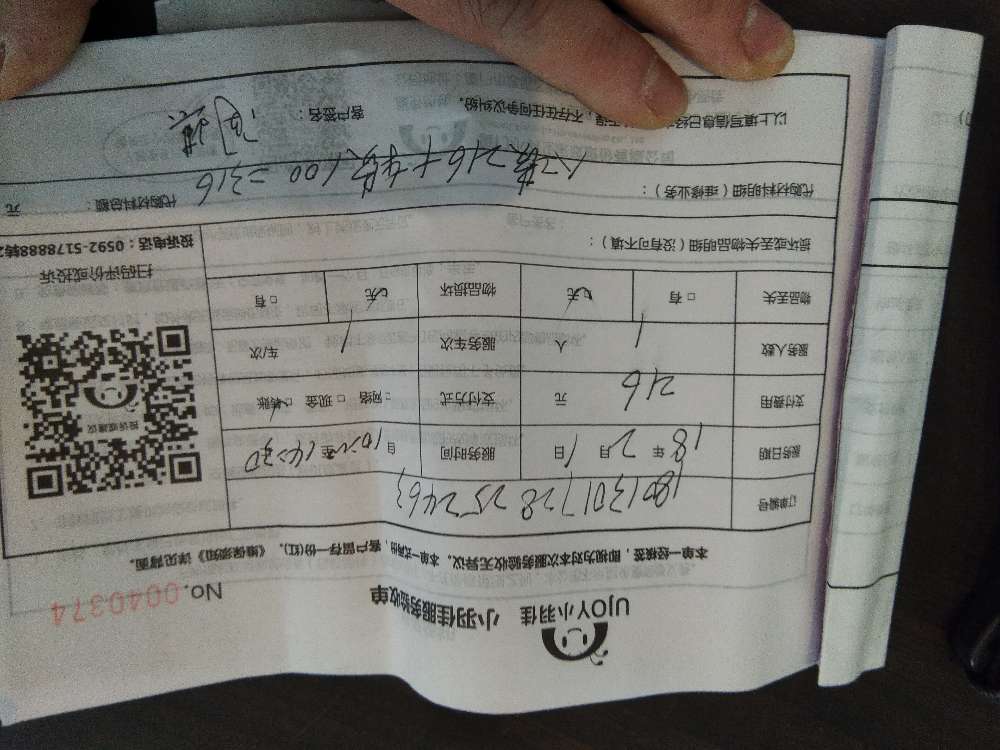 UJOY小羽佳 小羽佳服务验收单
No.0040374
本单一经核签，即视为对本次服务验收无异议。本单一式两份，客户留存一份(红)，《维保须知》详见背面。
订单编号
服务日期 18 年 2 月 1 日 服务时间 自 10:00 至 14:30
支付费用 216 元 支付方式 □网络 □现金 □转账
服务人数 1 人 服务车次 1 车/次
物品丢失 □有 □无 物品损坏 □无 □有
投诉或建议
扫码评价或投诉
损坏或丢失物品明细（没有可不填）：
投诉电话：0592-5178888转2
代购材料明细（维修业务）：
216+ 100=316
代购材料总额： 元
以上填写信息已经 不存在任何争议纠纷。 客户签名：